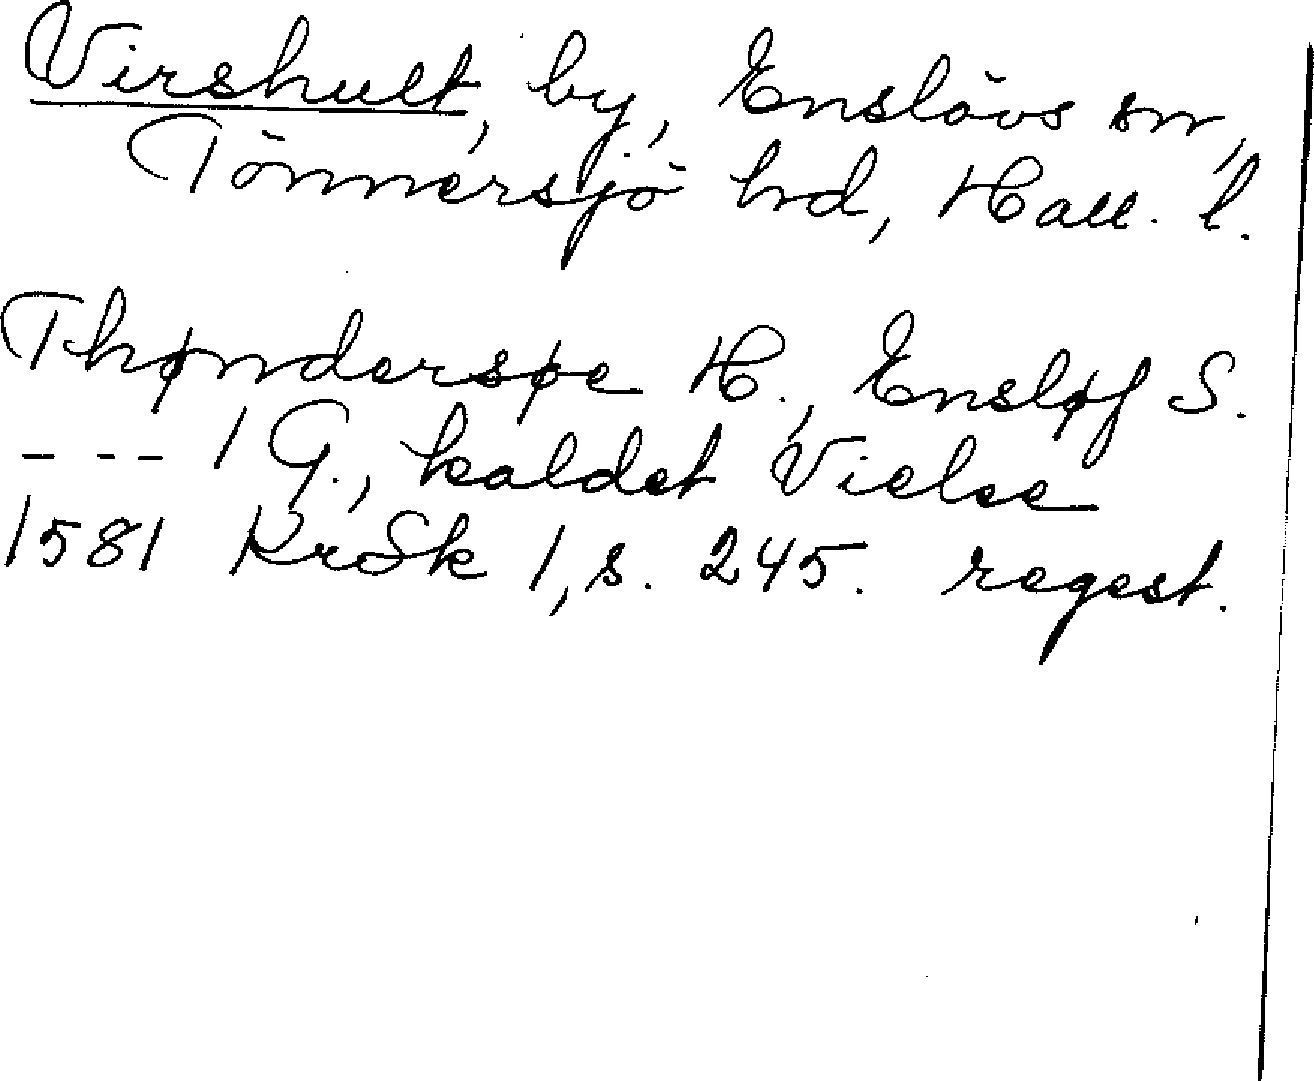 Virshult, by, Enslövs sn,
Tönnersjö hd, Hall. l.
Thøndersøe H., Ensløf S.
- - - 1 G., kaldet Vielse
1581 KrSk 1, s. 245. regest.